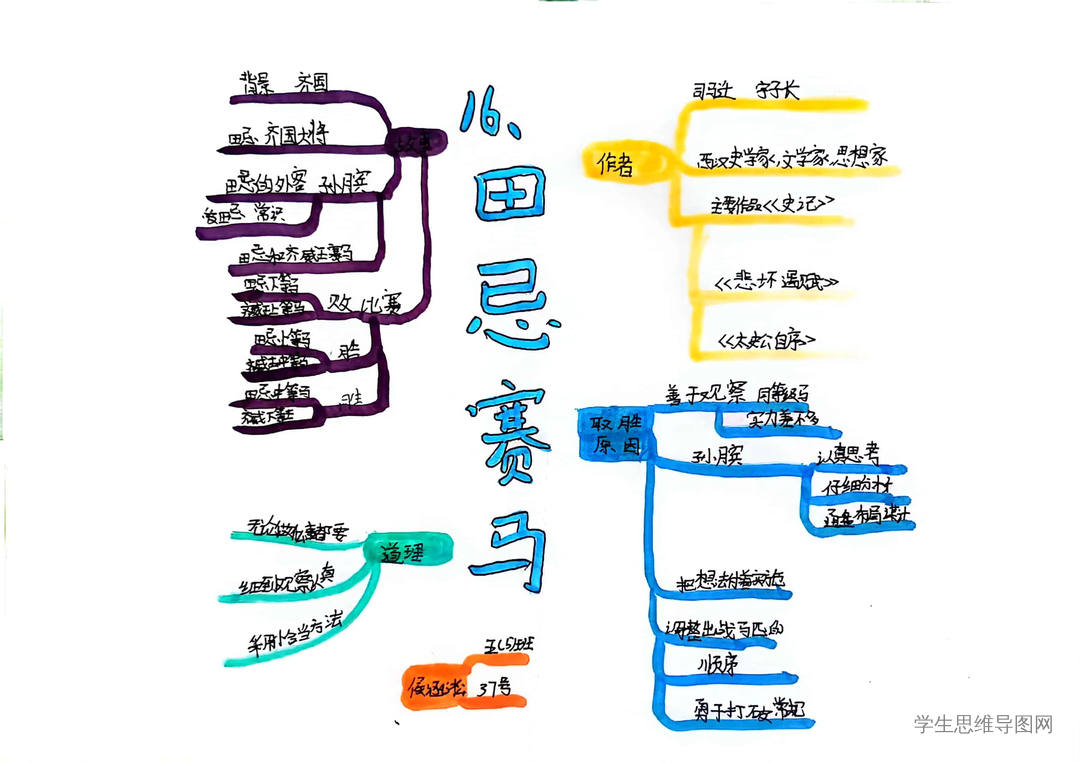 16、田忌赛马
背景 齐国
田忌 齐国大将
田忌的外客 孙膑
田忌 赏识
田忌和齐威王赛马
败 比赛
田忌下等马
田忌上等马
胜
田忌中等马
胜
作者
司马迁 字子长
西汉史学家,文学家,思想家
主要作品<<史记>>
<<太史公自序>>
取胜
原因
善于观察 同等级马
实力差不多
孙膑
认真思考
仔细分析
布局设计
把想法付诸实施
调整出战马匹的
顺序
勇于打破常规
道理
无论做什么事都要
细致观察认真
采用恰当方法
37号
学生思维导图网